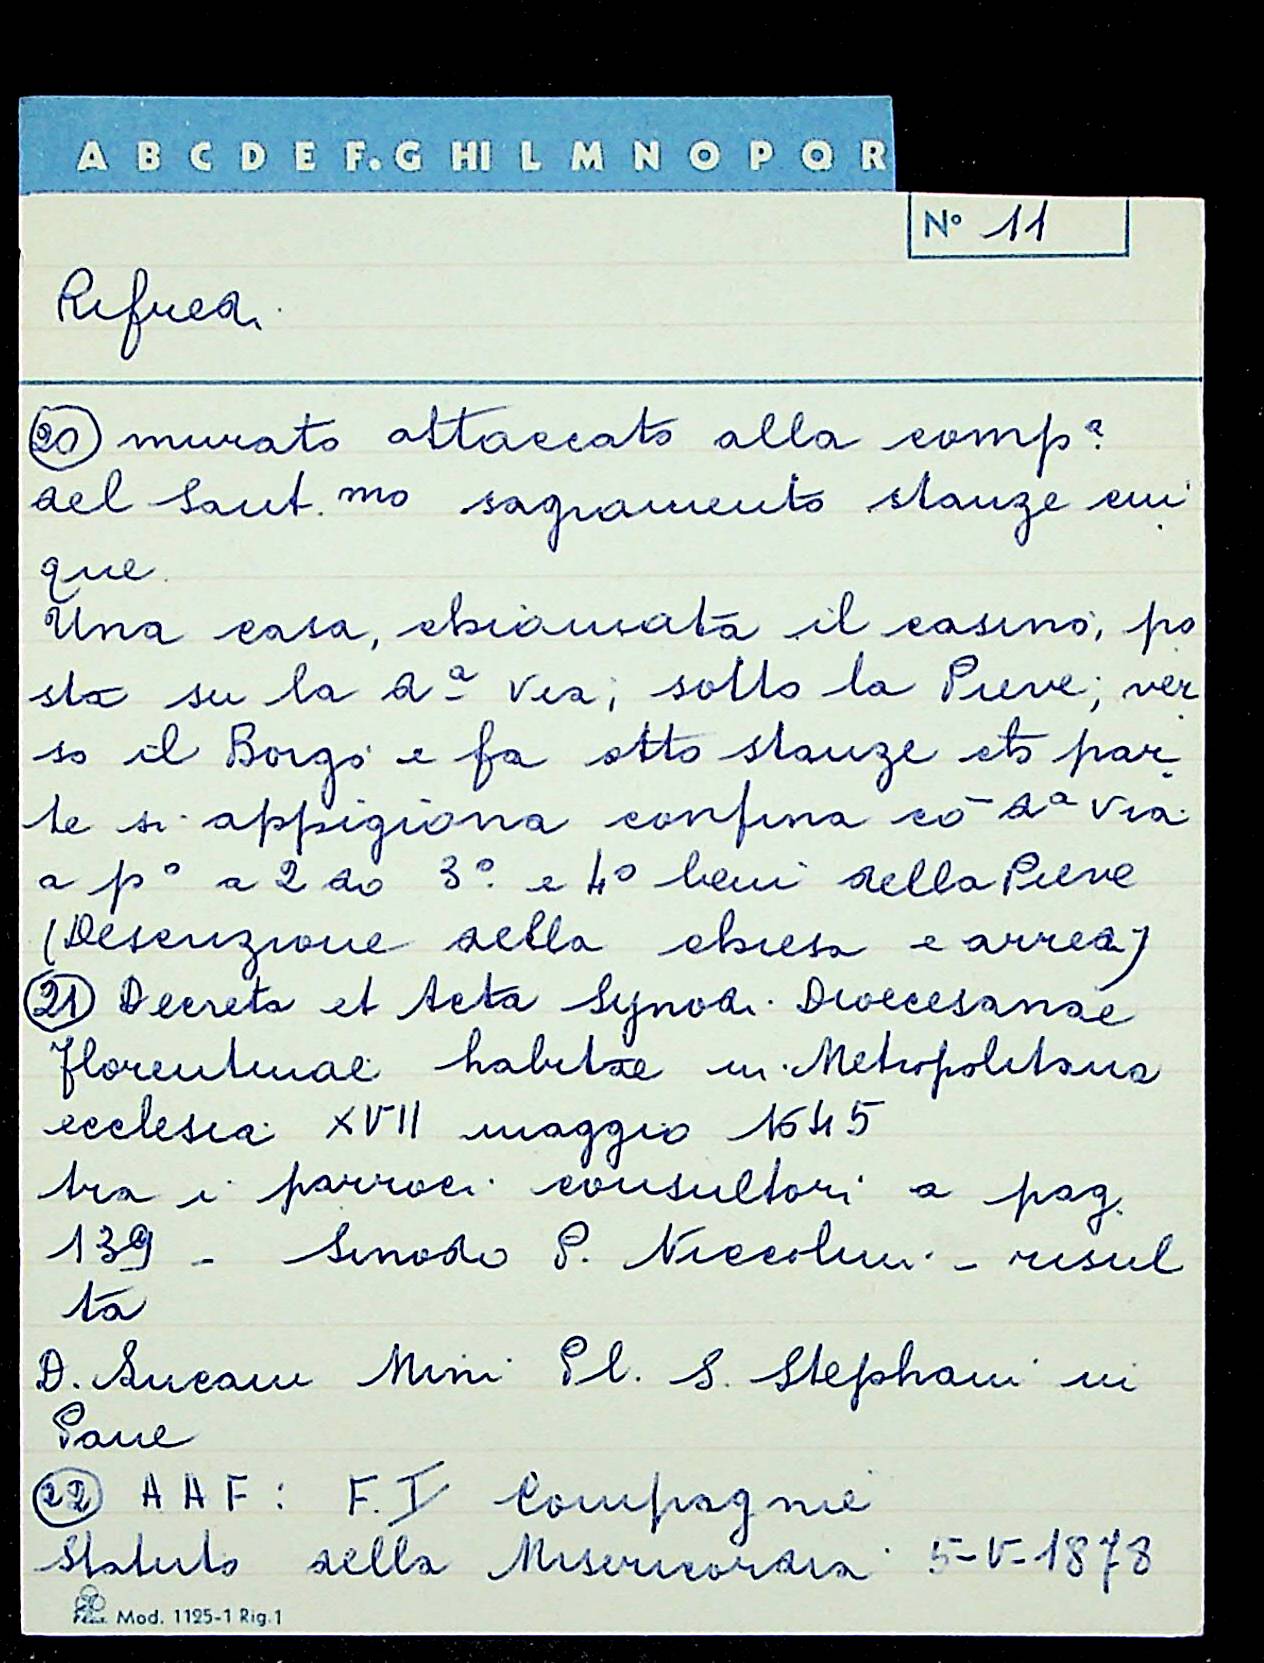 A B C D E F. G HI L M N O P Q R
N° 11
Rifredi
20 murato attaccato alla comp.ª
del Sant.mo sagramento stanze cin
que
Una casa, chiamata il casino, po
sta su la dª via; sotto la Pieve; ver
so il Borgo e fa otto stanze et par
te si appigiona confina cō dª via
a p° a 2do 3° e 4° beni della Pieve
(Descrizione della chiesa e arredi)
21 Decreta et Acta Synodi Dioecesanae
Florentinae habitae in Metropolitana
ecclesia XVII maggio 1645
tra i parroci consultori a pag.
139 - Sinodo P. Niccolini - risul
ta
D. Lucam Mini Pl. S. Stephani in
Pane
22 AAF: F.I Compagnie
Statuto della Misericordia 5-V-1878
Mod. 1125-1 Rig.1